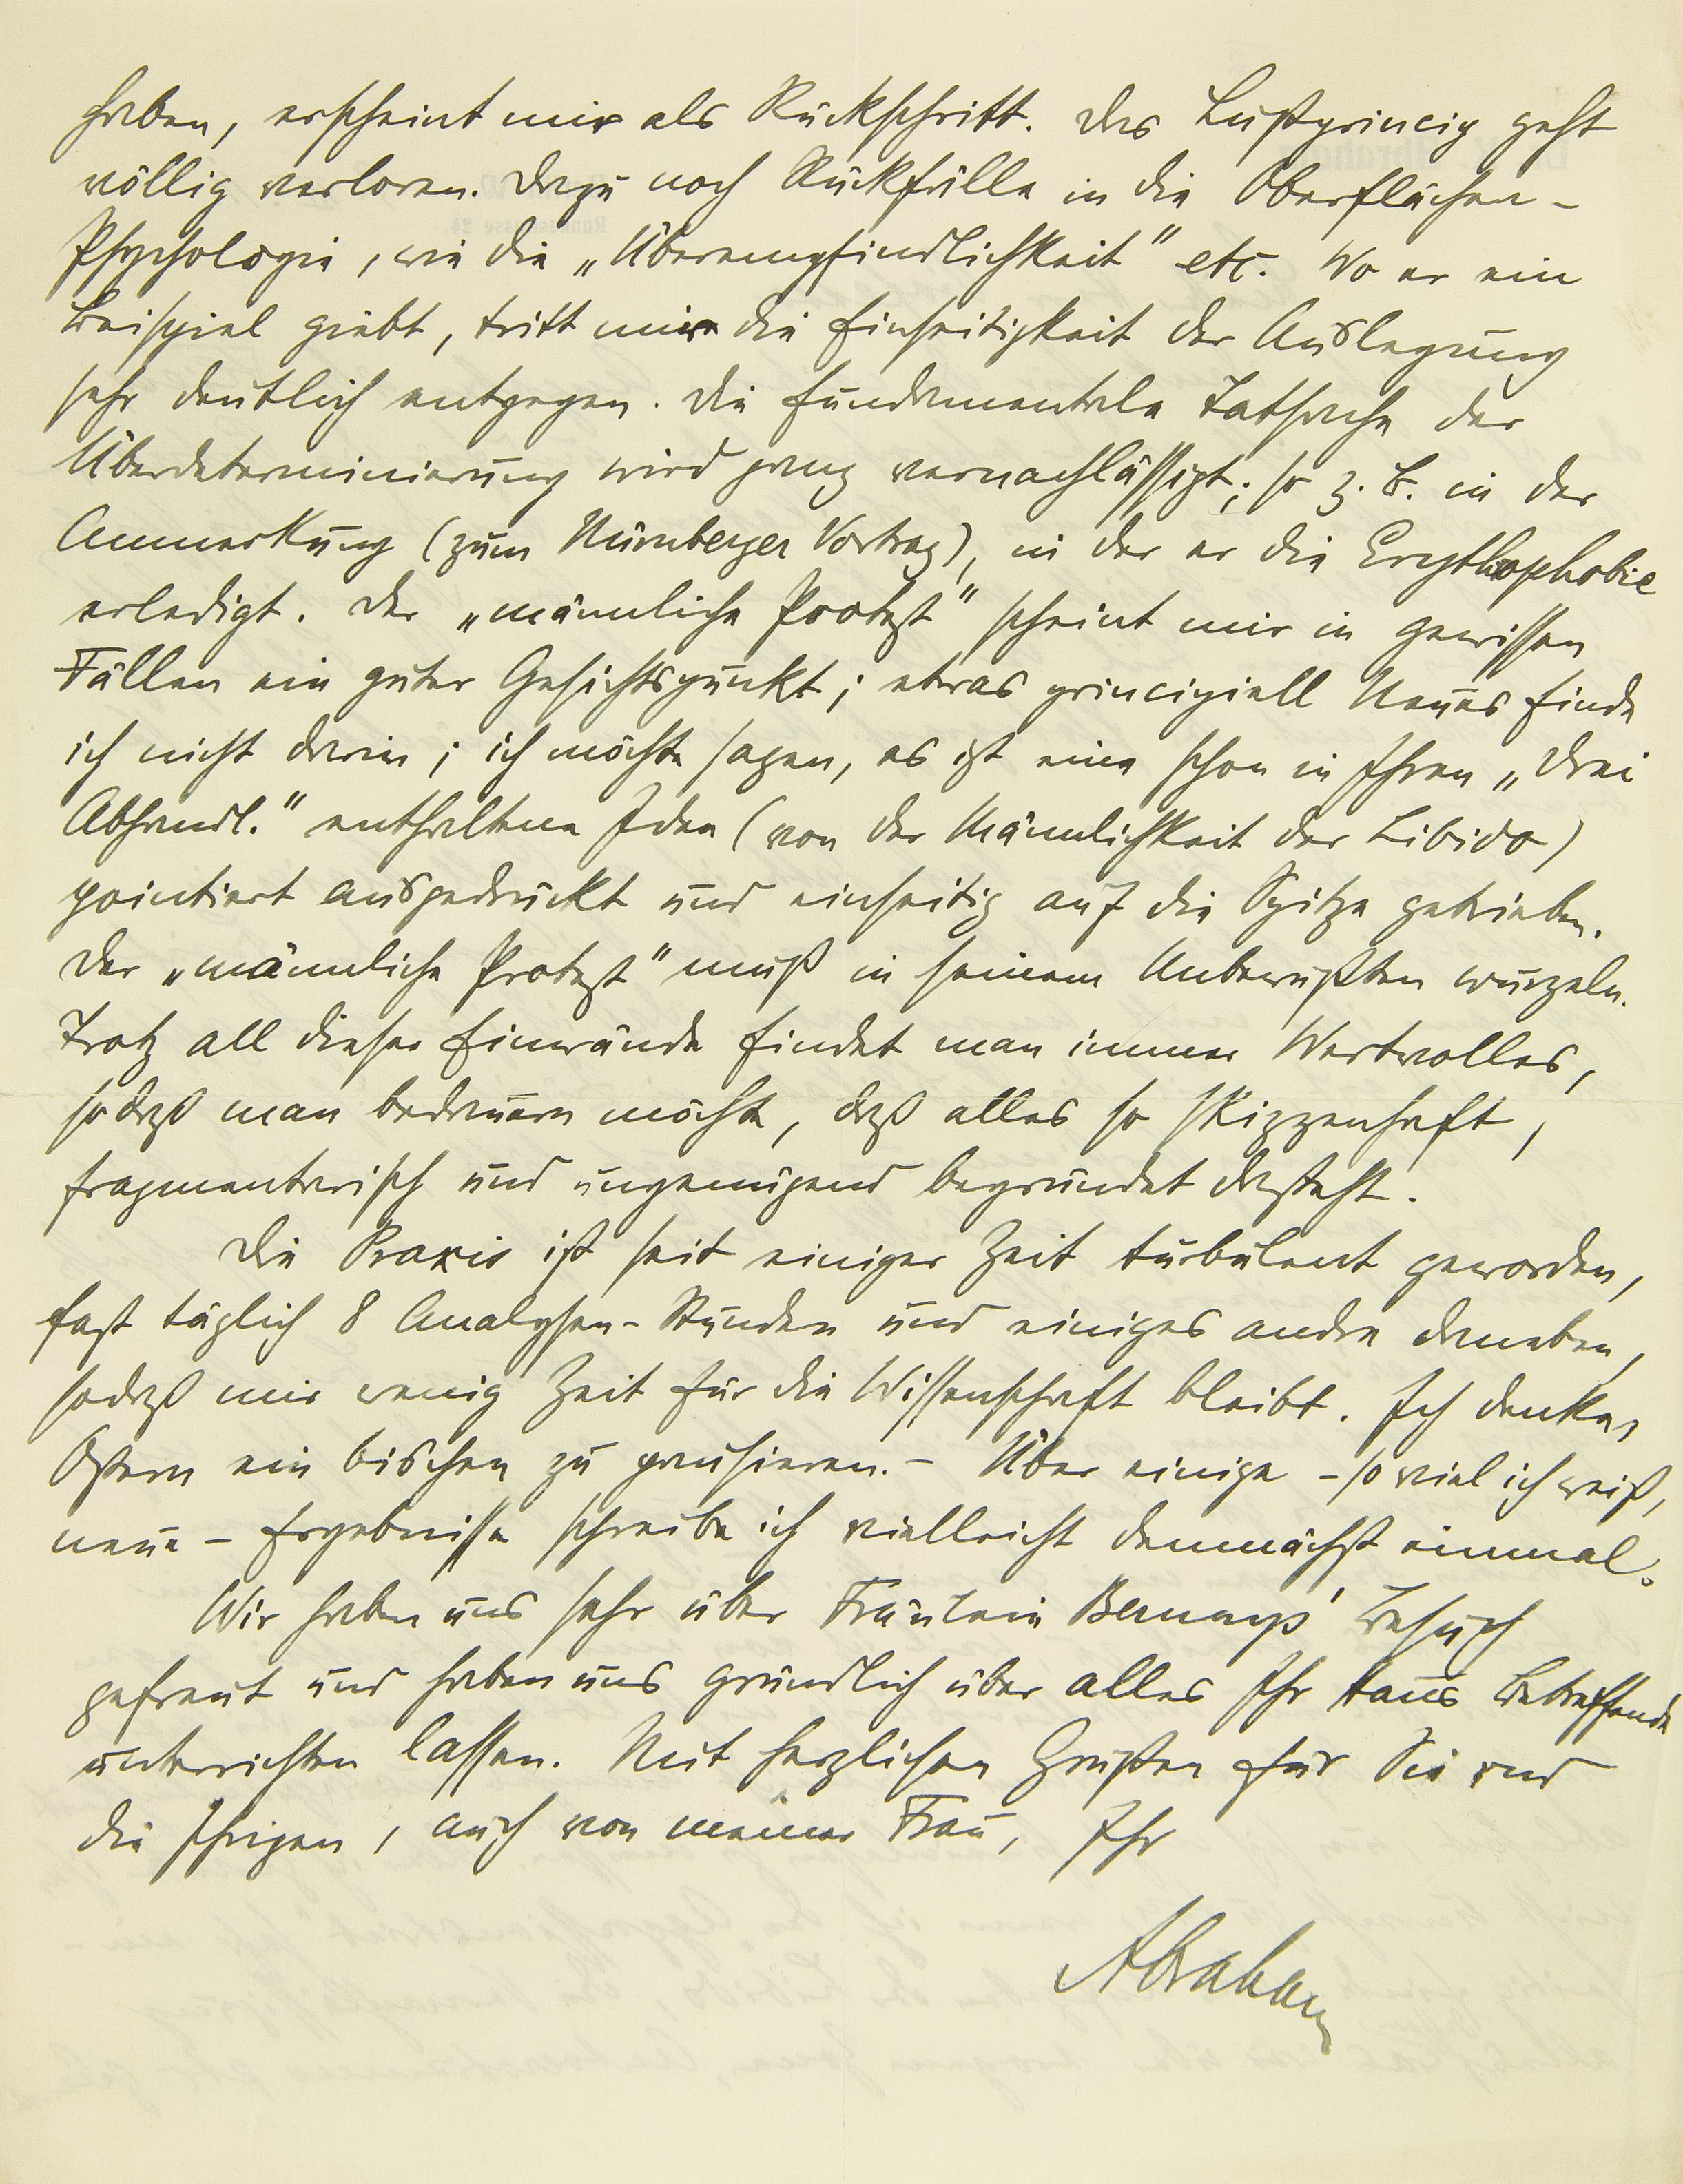 haben, erscheint mir als Rückschritt. Das Lustprincip geht
völlig verloren. Dazu noch Rückfälle in die Oberflächen-
Psychologie, wie die „Überempfindlichkeit" etc. Wo er ein
Beispiel giebt, tritt mir die Einseitigkeit der Auslegung
sehr deutlich entgegen. Die fundamentale Tatsache der
Überdeterminierung wird ganz vernachlässigt; so z. B. in der
Anmerkung (zum Nürnberger Vortrag), in der er die Erythophobie
erledigt. Der „männliche Protest" scheint mir in gewissen
Fällen ein guter Gesichtspunkt; etwas principiell Neues finde
ich nicht darin; ich möchte sagen, es ist eine schon in Ihren „Drei
Abhandl." enthaltene Idee (von der Männlichkeit der Libido)
pointiert ausgedrückt und einseitig auf die Spitze getrieben.
Der „männliche Protest" muß in seinem Unbewußten wurzeln.
Trotz all dieser Einwände findet man immer Wertvolles,
sodaß man bedauern möchte, daß alles so skizzenhaft,
fragmentarisch und ungenügend begründet dasteht.
Die Praxis ist seit einiger Zeit turbulent geworden,
fast täglich 8 Analysen-Stunden und einiges andre daneben,
sodaß mir wenig Zeit für die Wissenschaft bleibt. Ich denke,
Ostern ein bischen zu pausieren. - Über einige - so viel ich weiß,
neue - Ergebnisse schreibe ich vielleicht demnächst einmal.
Wir haben uns sehr über Fräulein Bernays' Besuch
gefreut und haben uns gründlich über alles Ihr Haus Betreffende
unterrichten lassen. Mit herzlichen Grüßen für Sie und
die Ihrigen, auch von meiner Frau, Ihr
Abraham